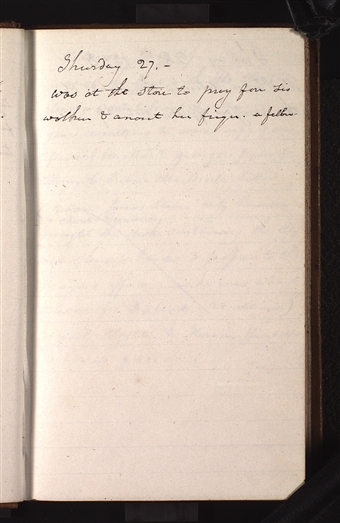 Thursday 27. –
was at the store to pray for sis
walker & anoint her finger. a fellon